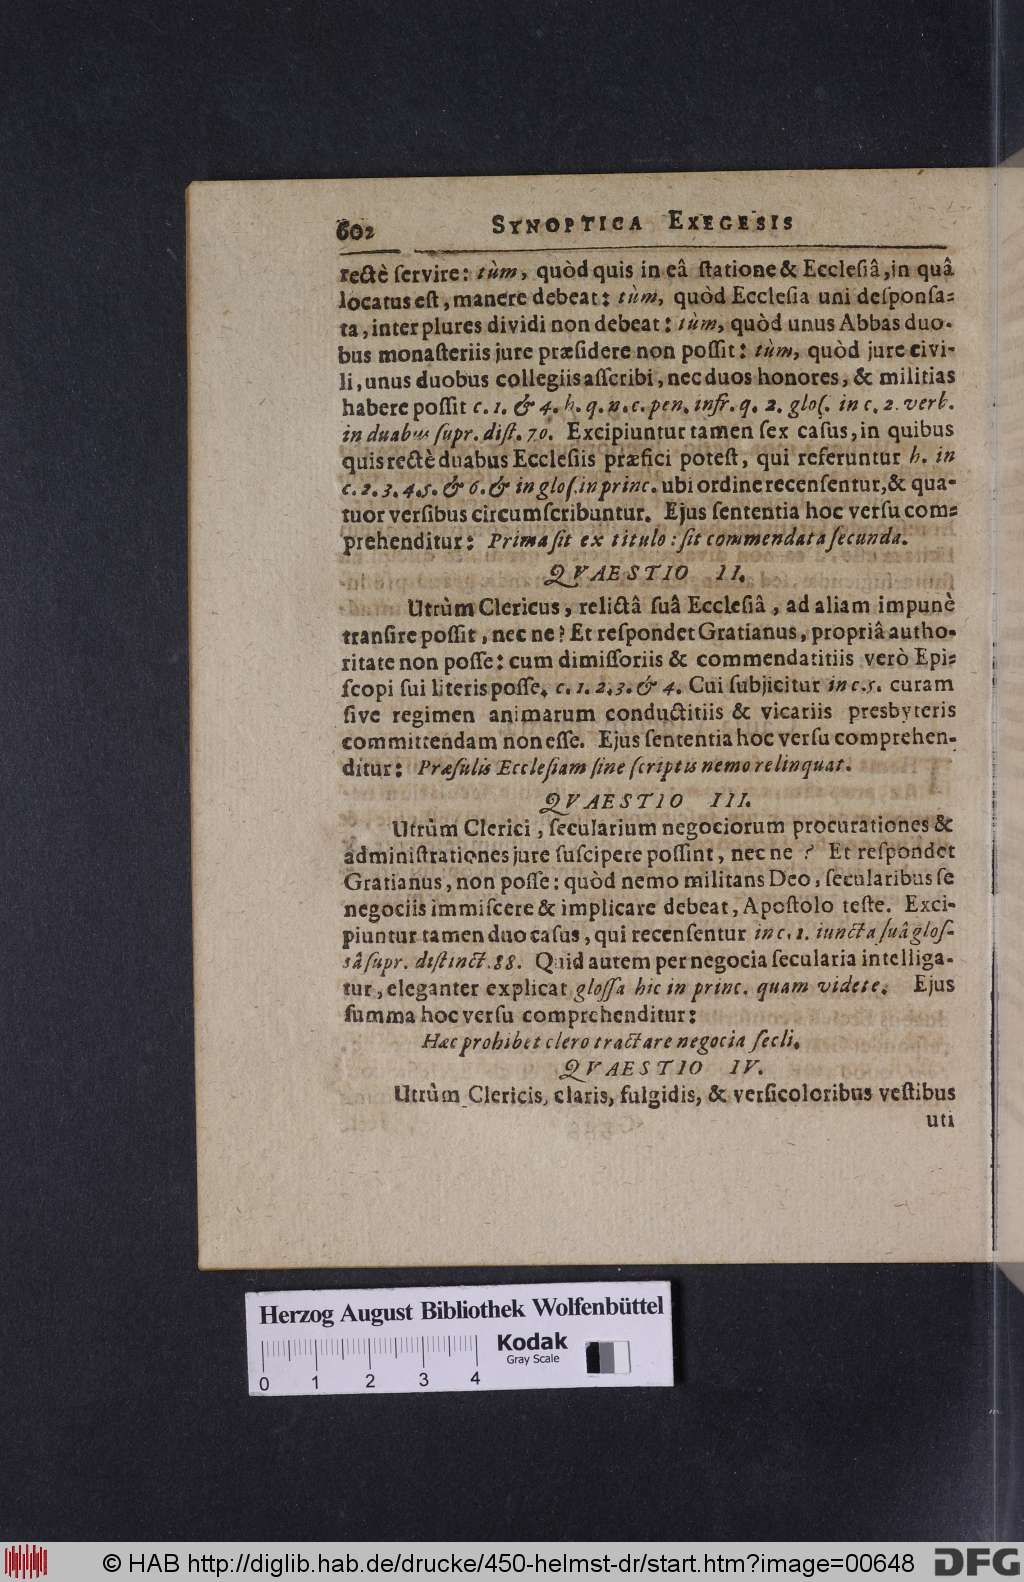 602 SYNOPTICA EXEGESIS
rectè ſervire: tùm, quòd quis in eâ ſtatione & Eccleſiâ, in quâ
locatus eſt, manere debeat: tùm, quòd Eccleſia uni deſponſa-
ta, inter plures dividi non debeat: tùm, quòd unus Abbas duo-
bus monaſteriis jure præſidere non poſſit: tùm, quòd jure civi-
li, unus duobus collegiis aſſcribi, nec duos honores, & militias
habere poſſit c. 1. & 4. h. q. n. c. pen. infr. q. 2. gloſ. in c. 2. verb.
in duabus ſupr. diſt. 70. Excipiuntur tamen ſex caſus, in quibus
quis rectè duabus Eccleſiis præfici poteſt, qui referuntur h. in
c. 2. 3. 4. 5. & 6. & in gloſ. in princ. ubi ordine recenſentur, & qua-
tuor verſibus circumſcribuntur. Ejus ſententia hoc verſu com-
prehenditur: Prima ſit ex titulo: ſit commendata ſecunda.
QVAESTIO II.
Utrùm Clericus, relictâ ſuâ Eccleſiâ, ad aliam impunè
tranſire poſſit, nec ne? Et reſpondet Gratianus, propriâ autho-
ritate non poſſe: cum dimiſſoriis & commendatitiis verò Epi-
ſcopi ſui literis poſſe, c. 1. 2. 3. & 4. Cui ſubjicitur in c. 5. curam
ſive regimen animarum conductitiis & vicariis presbyteris
committendam non eſſe. Ejus ſententia hoc verſu comprehen-
ditur: Præſulis Eccleſiam ſine ſcriptis nemo relinquat.
QVAESTIO III.
Utrùm Clerici, ſecularium negociorum procurationes &
adminiſtrationes jure ſuſcipere poſſint, nec ne? Et reſpondet
Gratianus, non poſſe: quòd nemo militans Deo, ſecularibus ſe
negociis immiſcere & implicare debeat, Apoſtolo teſte. Exci-
piuntur tamen duo caſus, qui recenſentur in c. 1. iuncta ſuâ gloſ-
sâ ſupr. diſtinct. 88. Quid autem per negocia ſecularia intelliga-
tur, eleganter explicat gloſſa hic in princ. quam videte. Ejus
ſumma hoc verſu comprehenditur:
Hæc prohibet clero tractare negocia ſecli.
QVAESTIO IV.
Utrùm Clericis, claris, fulgidis, & verſicoloribus veſtibus
uti
Herzog August Bibliothek Wolfenbüttel
Kodak
Gray Scale
0 1 2 3 4
© HAB http://diglib.hab.de/drucke/450-helmst-dr/start.htm?image=00648 DFG